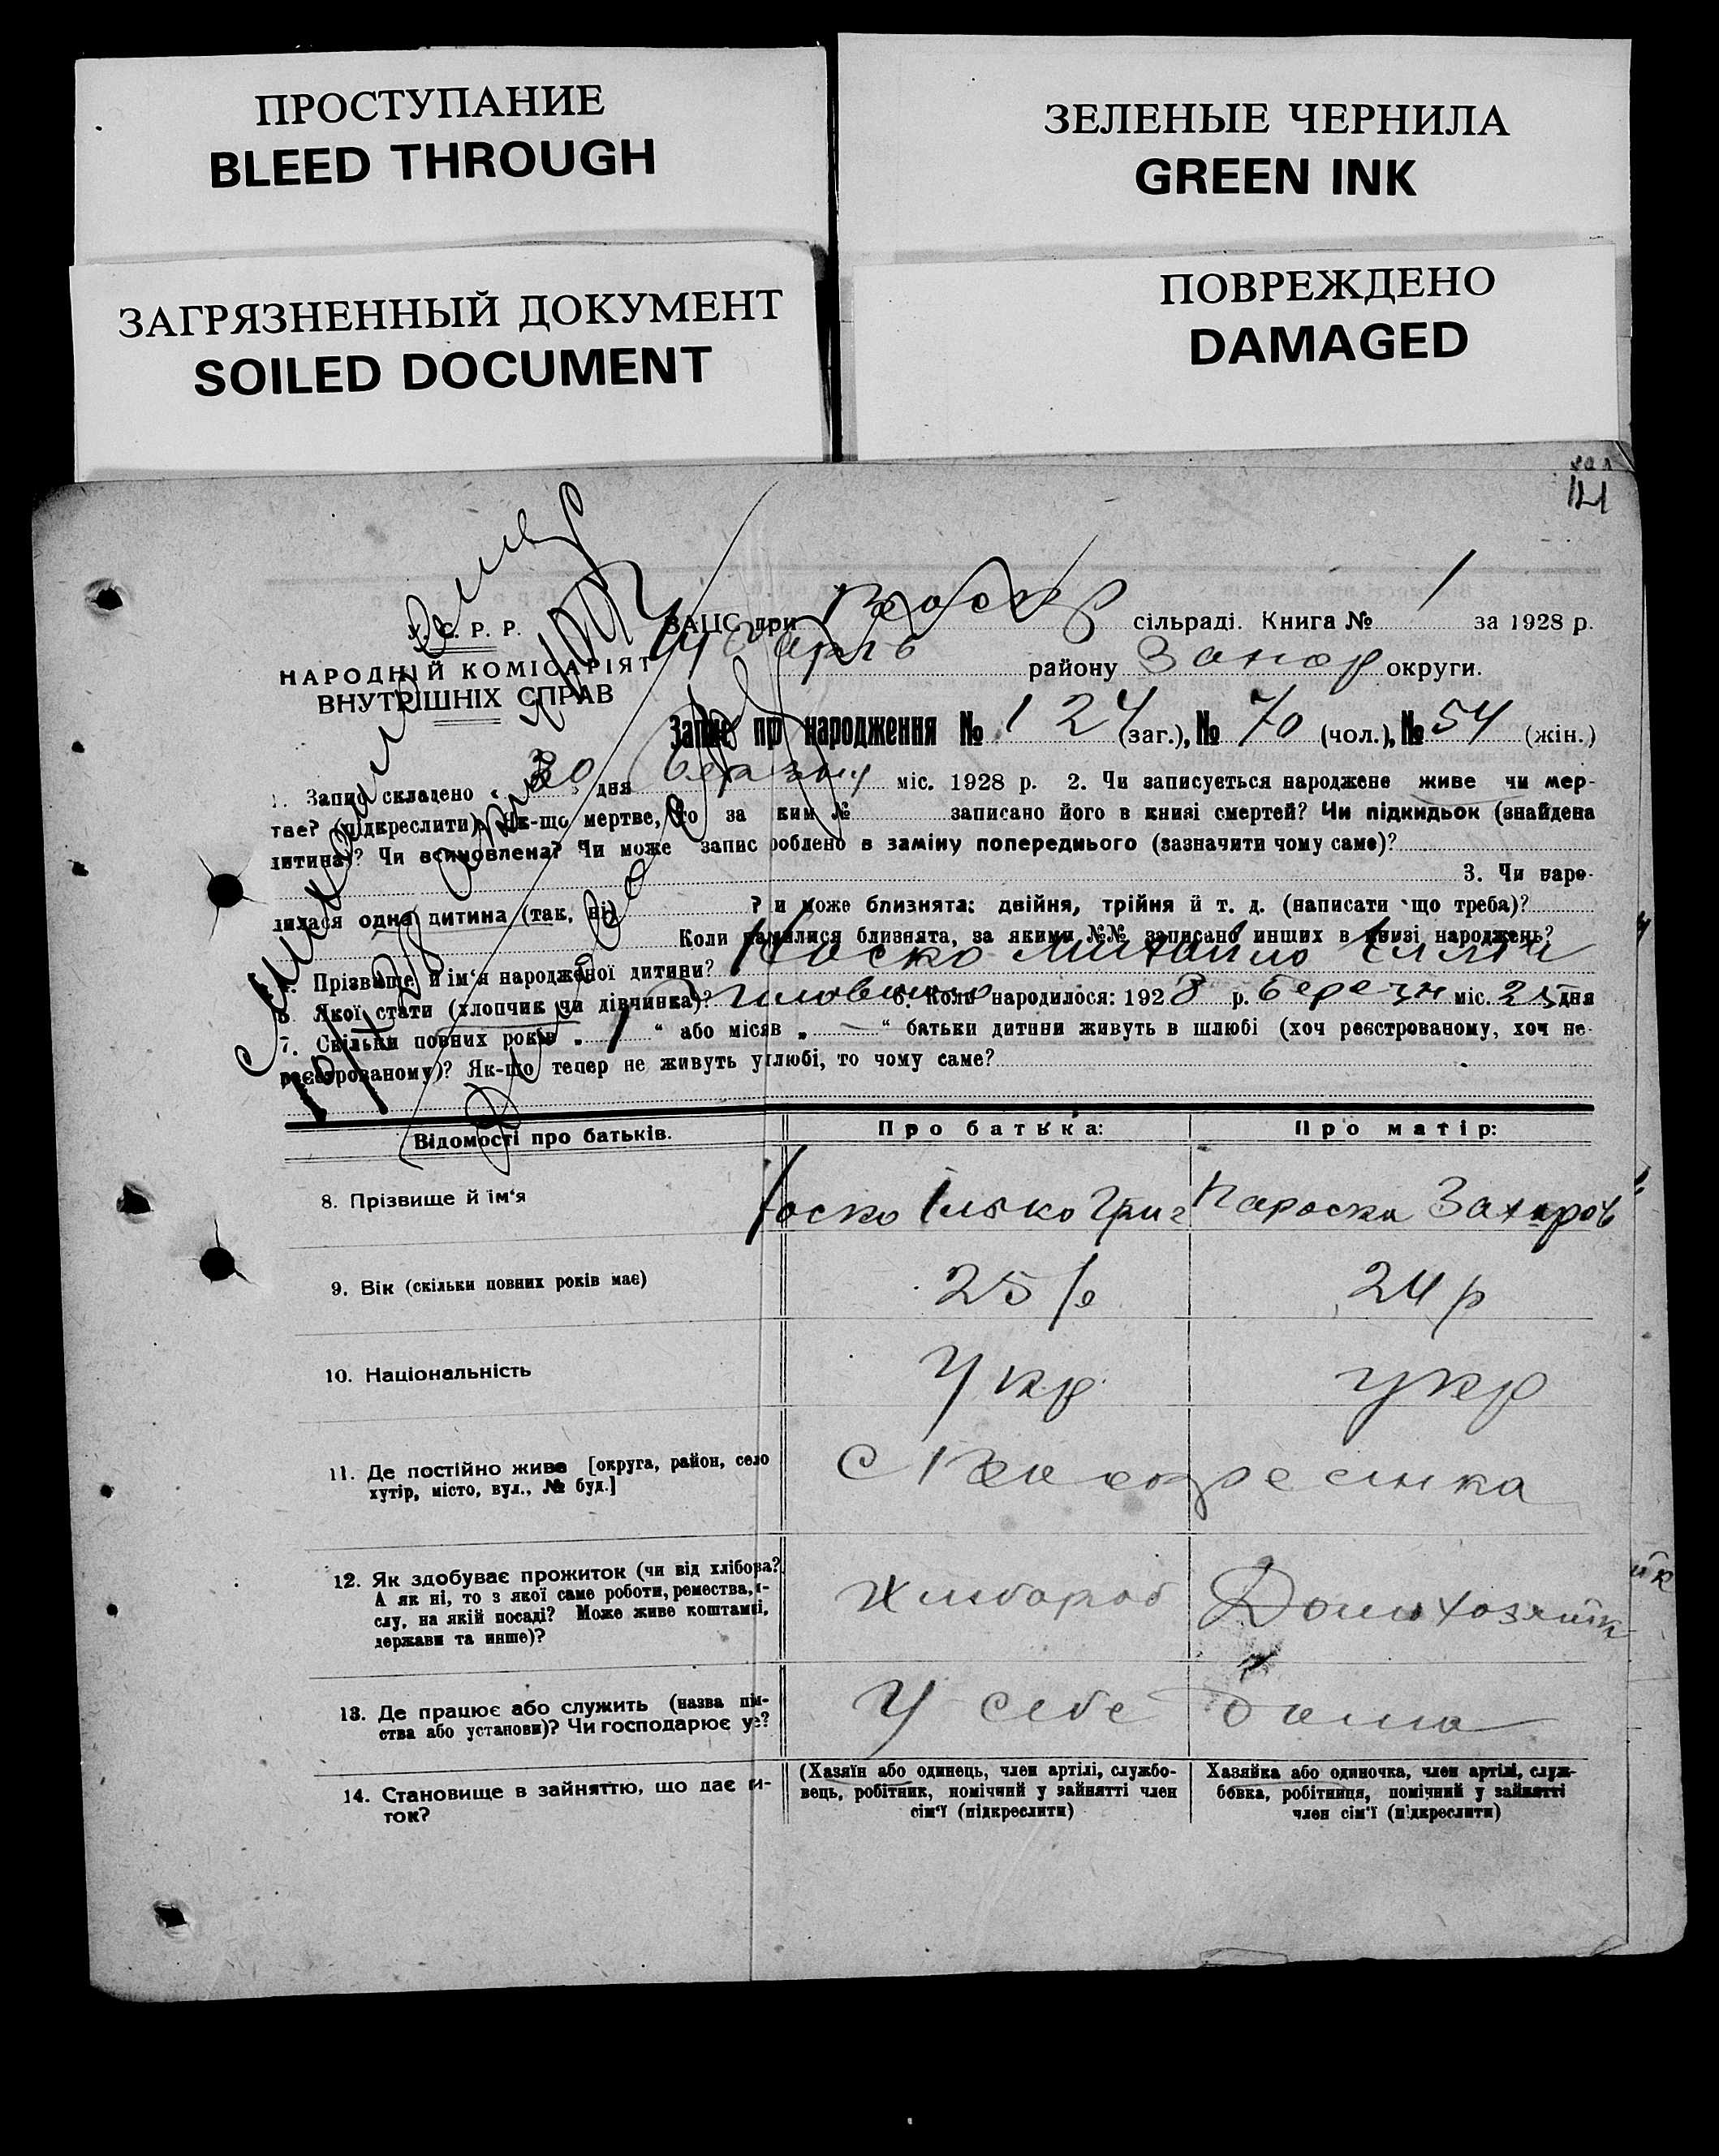 ПРОСТУПАНИЕ
BLEED THROUGH
ЗЕЛЕНЫЕ ЧЕРНИЛА
GREEN INK
ЗАГРЯЗНЕННЫЙ ДОКУМЕНТ
SOILED DOCUMENT
ПОВРЕЖДЕНО
DAMAGED
У. С. Р. Р.
НАРОДНІЙ КОМІСАРІЯТ
ВНУТРІШНІХ СПРАВ
ЗАЦС при Воскр сільраді. Книга № 1 за 1928 р.
району Запор округи.
Запис про народження № 124 (заг.), № 70 (чол.), № 54 (жін.)
1. Запис складено „ 30 " дня березня міс. 1928 р. 2. Чи записується народжене живе чи мер-
тве? (підкреслити). Як-що мертве, то за ким № записано його в книзі смертей? Чи підкидьок (знайдена
дитина)? Чи всиновлена? Чи може запис роблено в заміну попереднього (зазначити чому саме)?
3. Чи наро-
дилася одна дитина (так, ні) ? и може близнята: двійня, трійня й т. д. (написати що треба)?
Коли народилися близнята, за якими №№ записано инших в книзі народжень?
4. Прізвище й ім'я народженої дитини? Носко Михайло Ілліч
5. Якої стати (хлопчик чи дівчинка)? чиловичо 6. Коли народилося: 1928 р. березн міс. 25 дня
7. Скільки повних років „ 1 " або місяв „ — " батьки дитини живуть в шлюбі (хоч реєстрованому, хоч не-
реєстрованому)? Як-що тепер не живуть у шлюбі, то чому саме?
Відомості про батьків.
Про батька:
Про матір:
8. Прізвище й ім'я
Носко Ілько Григ
Параска Захаров
9. Вік (скільки повних років має)
25 р
24 р
10. Національність
Укр
укр
11. Де постійно живе [округа, район, село
хутір, місто, вул., № буд.]
С Воскресенка
12. Як здобуває прожиток (чи від хлібова?
А як ні, то з якої саме роботи, ремества,
слу, на якій посаді? Може живе коштамі,
держави та инше)?
Хлібороб
Домохозяйк
13. Де працює або служить (назва пі-
ства або установи)? Чи господарює у?
У себе
дома
14. Становище в зайняттю, що дає
ток?
(Хазяїн або одинець, член артілі, службо-
вець, робітник, помічний у зайнятті член
сім'ї (підкреслити)
Хазяйка або одиночка, член артілі, служ-
бовка, робітниця, помічний у зайнятті
член сім'ї (підкреслити)